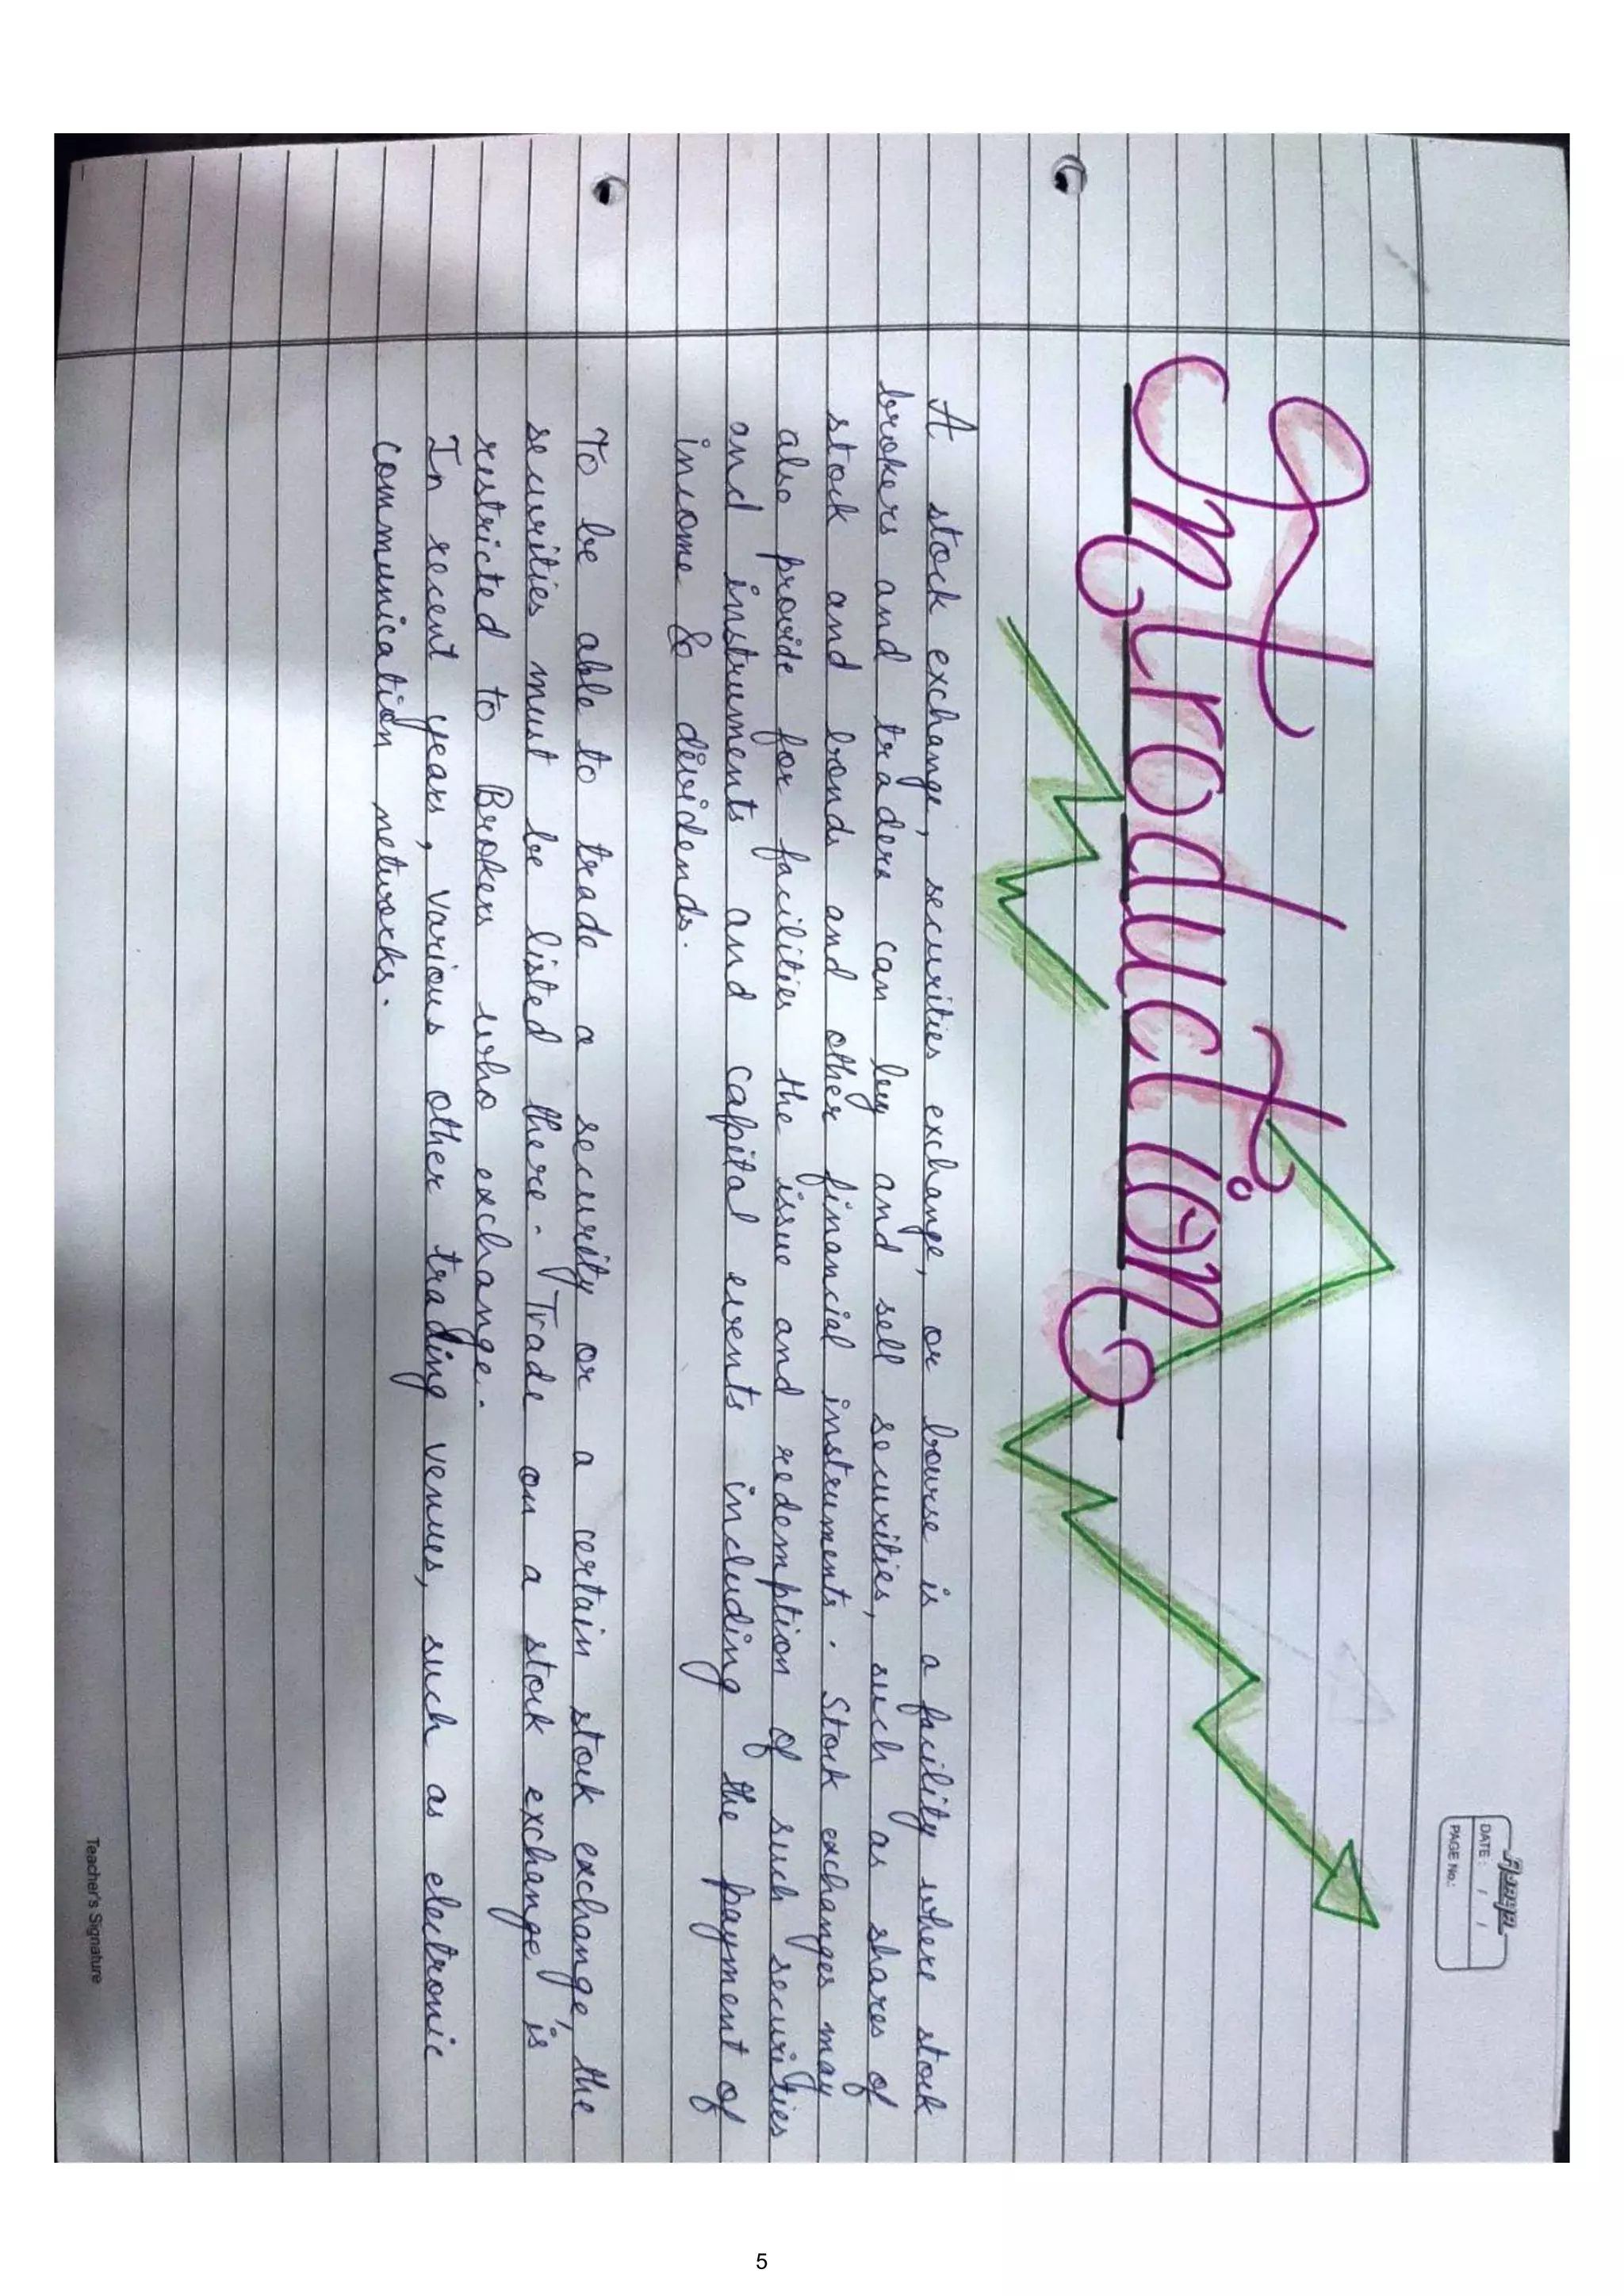 DATE: / /
PAGE No.:
Introduction
A stock exchange, securities exchange, or bourse is a facility where stock
brokers and traders can buy and sell securities, such as shares of
stock and bonds and other financial instruments. Stock exchanges may
also provide for facilities the issue and redemption of such securities
and instruments and capital events including the payment of
income & dividends.
To be able to trade a security or a certain stock exchange, the
securities must be listed there. Trade on a stock exchange is
restricted to Brokers who exchange.
In recent years, various other trading venues, such as electronic
communication networks.
Teacher's Signature
5